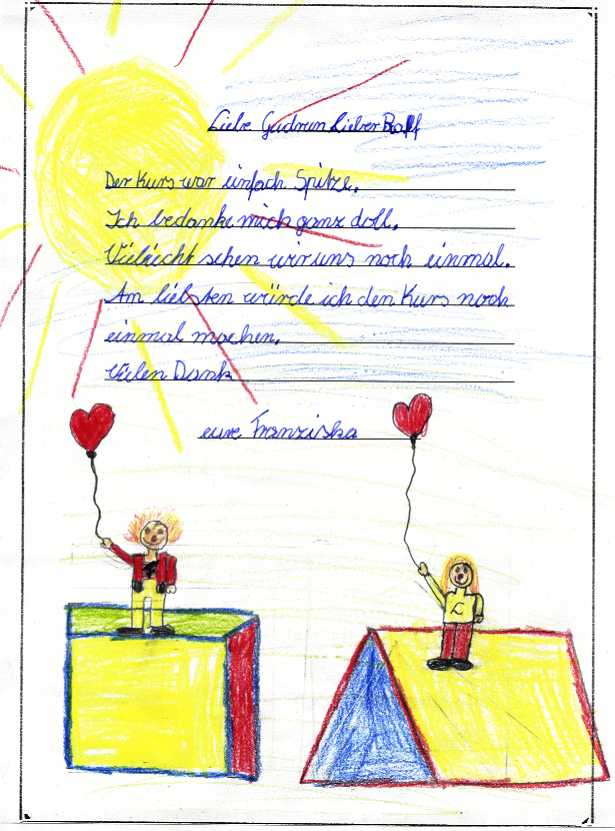 Liebe Gudrun Lieber Rolf
Der Kurs war einfach Spitze.
Ich bedanke mich ganz doll.
Vielleicht sehen wir uns noch einmal.
Am liebsten würde ich den Kurs noch
einmal machen.
Vielen Dank
eure Franziska